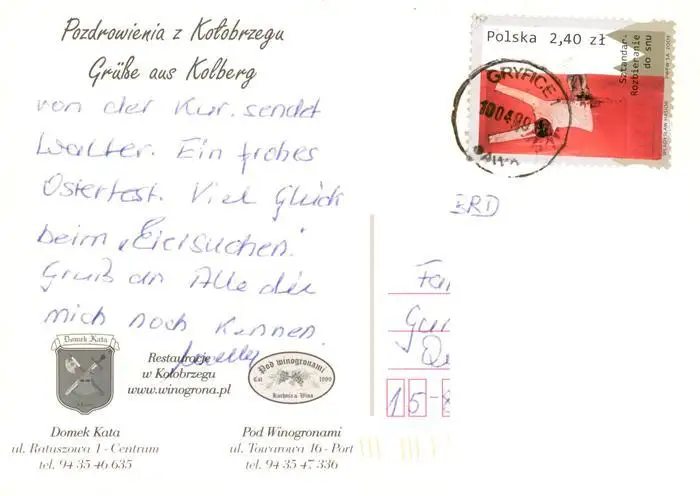 Pozdrowienia z Kołobrzegu
Grüße aus Kolberg
von der Kur. sendet
Walter. Ein frohes
Osterfest. Viel Glück
beim „Eiersuchen."
Gruß an Alle die
mich noch kennen.
Polska 2,40 zł
Sztandar.
Rozbieranie
do snu
GRYFICE
100409
BRD
Fa
Gu
15-
Domek Kata
Restauracje
w Kołobrzegu
www.winogrona.pl
Pod winogronami
Est. 1999
Kuchnia & Wina
Domek Kata
ul. Ratuszowa 1 - Centrum
tel. 94 35 46 635
Pod Winogronami
ul. Towarowa 16 - Port
tel. 94 35 47 336